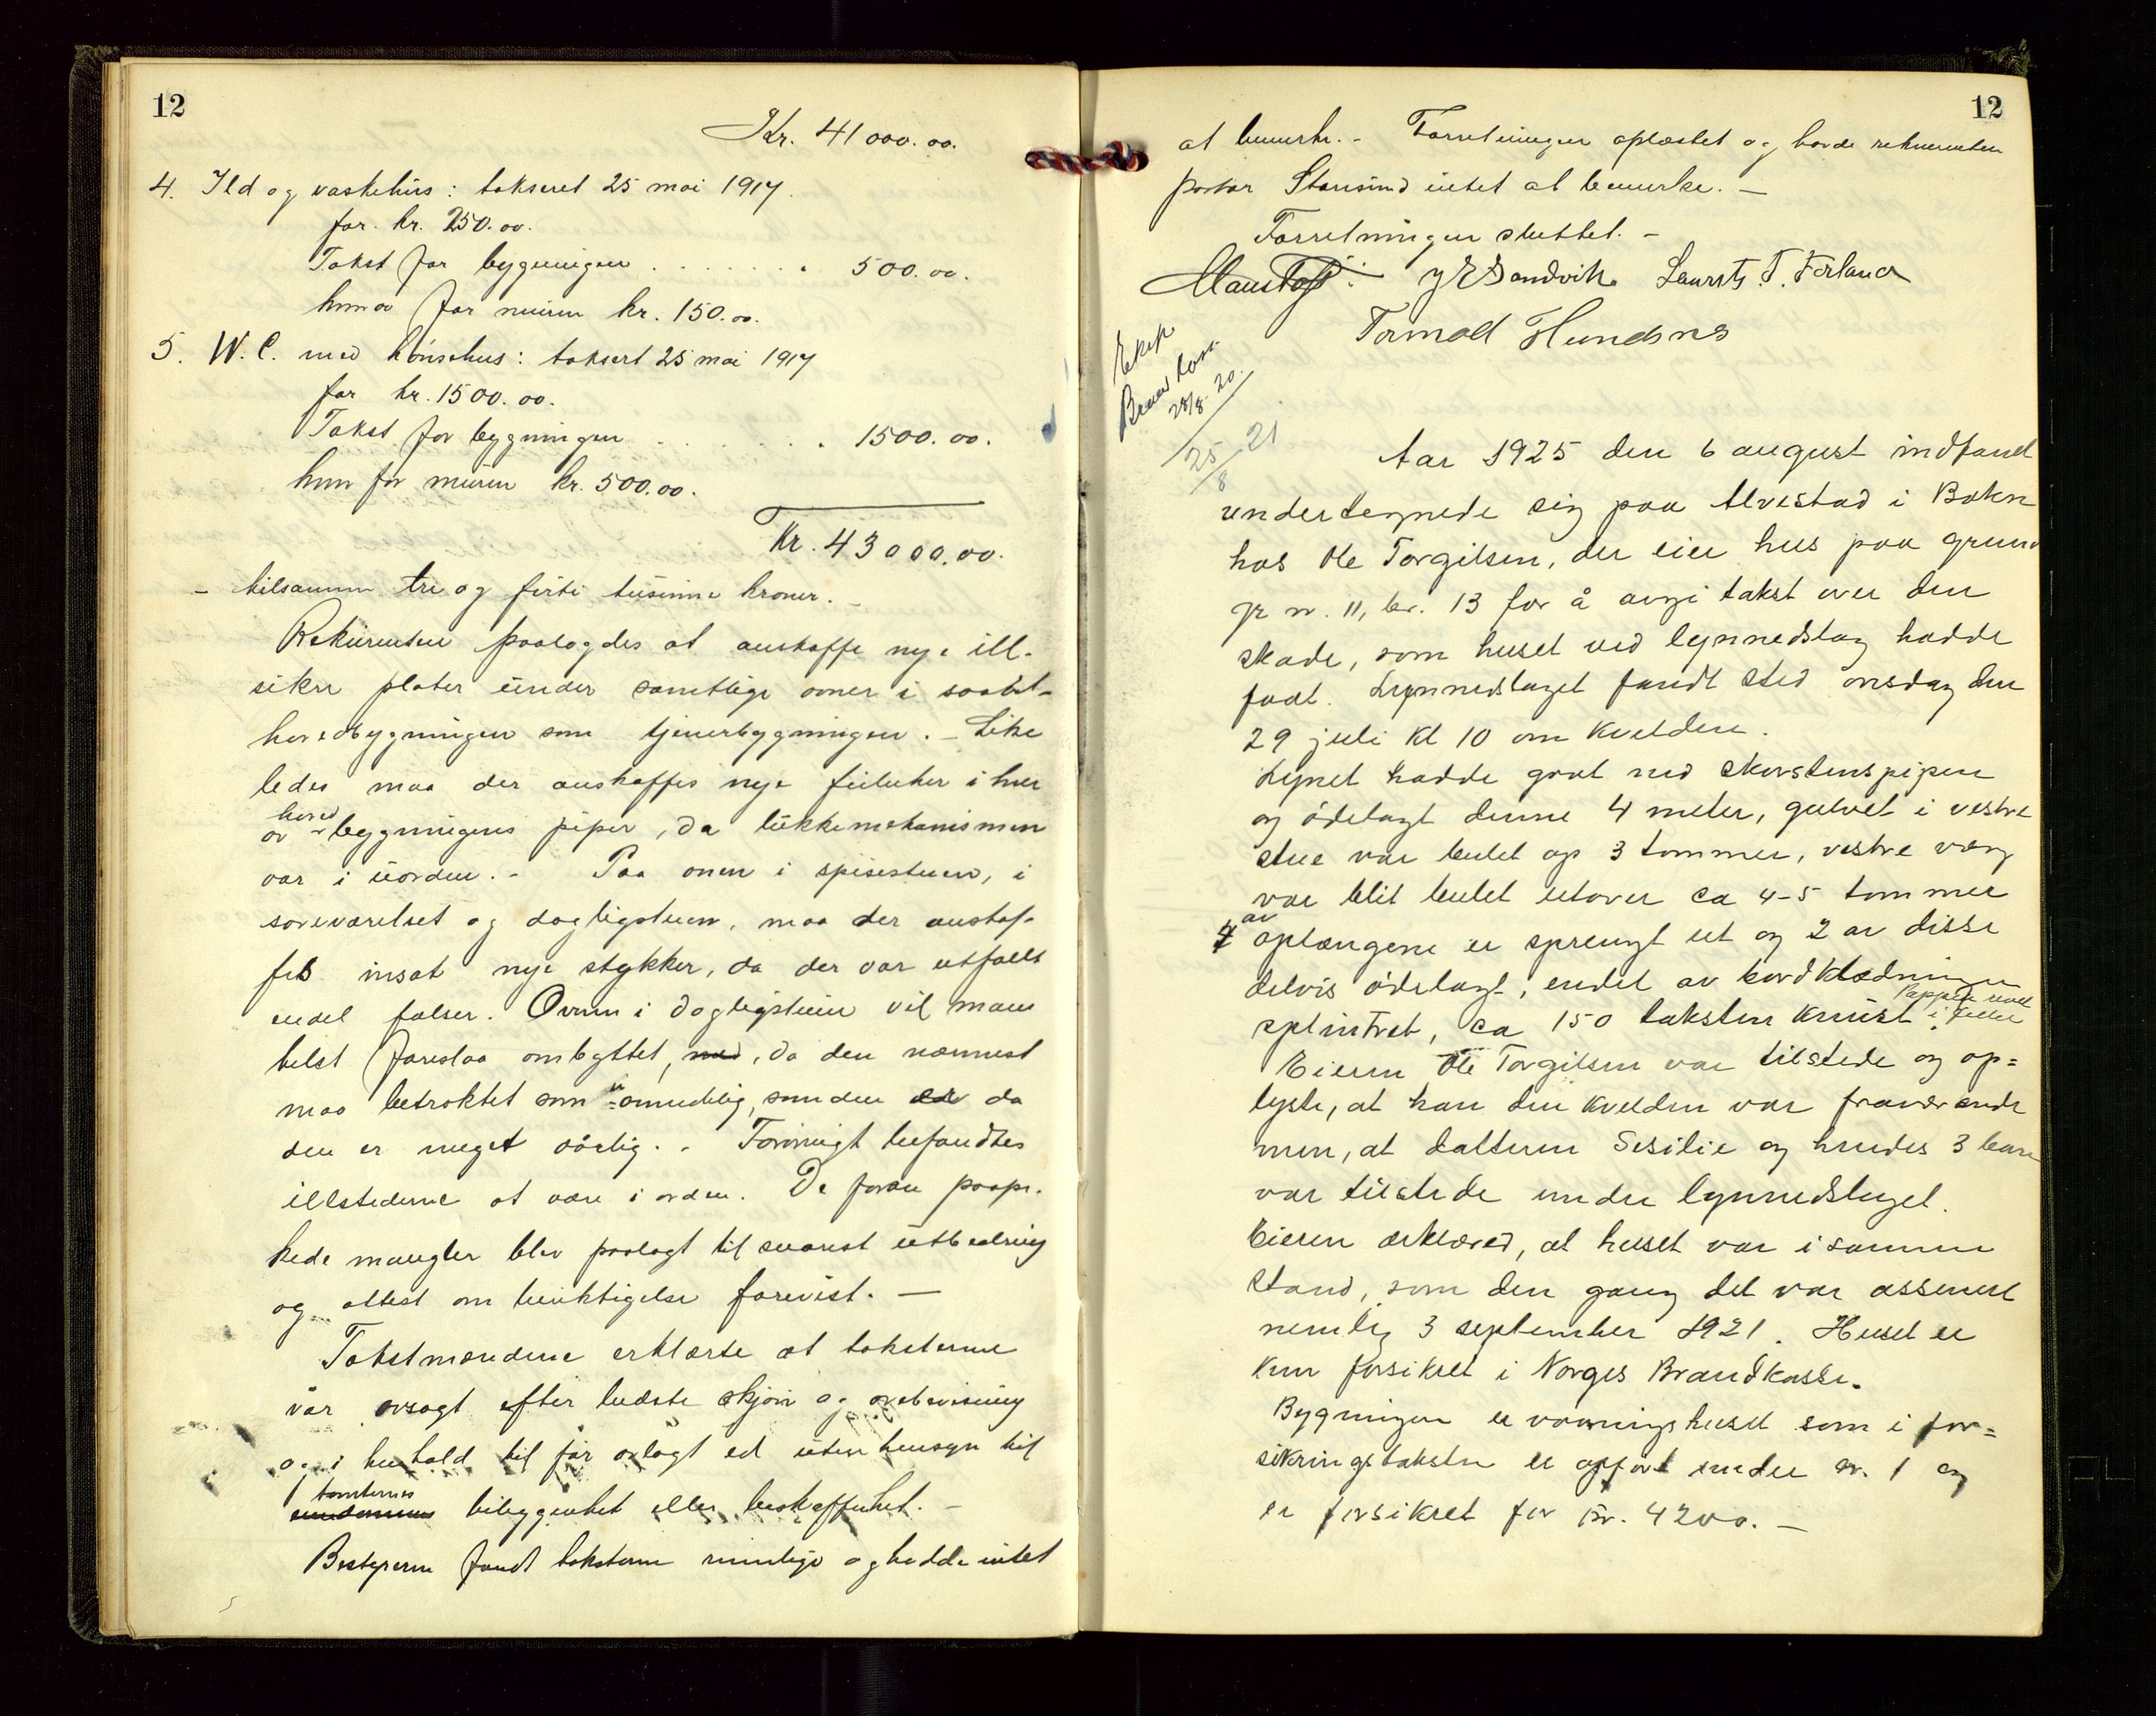 12
Kr. 41000.00.
4. Ild og vaskehus: taksert 25 mai 1917.
for kr. 250.00.
Takst for bygningen . . . . . . . 500.00.
hvorav for muren kr. 150.00.
5. W.C. med hönsehus: taksert 25 mai 1917
for kr. 1500.00.
Takst for bygningen . . . . . . . 1500.00.
hvorav for muren kr. 500.00.
Kr. 43000.00.
- tilsammen tre og förti tusinne kroner. -
Rekvirenten paalogdes at anskaffe nye ill-
sikre plater under samtlige ovner i saavel
hovedbygningen som tjenerbygningen. - Like
ledes maa der anskaffes nye feieluker i hver
hoved
av - bygningens piper, da lukkemekanismen
var i uorden. - Paa ovnen i spisestuen, i
soveværelset og dagligstuen, maa der anskaf-
fes insat nye stykker, da der var utfallt
endel falser. Ovnen i dagligstuen vil man
helst foreslaa ombyttet, da den nærmest
maa betraktet som uanvendelig, som den er da
den er meget daarlig. - Forövrigt befandtes
illstederne at være i orden. De foran paape-
kede mangler blev paalagt til snarest utbedring
og attest om besiktigelse forevist. —
Takstmændene erklærte at taksterne
var avsagt efter bedste skjön og overbevisning
og i henhold til før avlagt ed uten hensyn til
tomternes
bebyggenhet eller beskaffenhet. -
Bestyreren fandt taksterne rimelige og hadde intet
12
at bemerke. - Forretningen oplæstet og havde rekvirenten
pastor Stansund intet at bemerke. —
Forretningen sluttet. -
J E Sandvik. Laurits T. Förland
Tormod Hundsnes
Eksp
28/8. 20.
25/8 21
Aar 1925 den 6 august indfandt
undertegnede sig paa Alvestad i Bokn
hos Ole Torgilsen, der eier hus paa grund
gr nr. 11, br. 13 for å avgi takst over den
skade, som huset ved lynnedslag hadde
faat. Lynnedslaget fandt sted onsdag den
29 juli kl 10 om kvelden.
Lynet hadde gaat ned skorstenspipen
og ödelagt denne 4 meter, gulvet i vestre
stue var bulet op 3 tommer, vestre væg
var blit bulet utover ca 4-5 tommer
4 av oplængene er sprengt ut og 2 av disse
delvis ödelagt, endel av bordklædningen
splintret, ca 150 taksten knust. Pappen revet i filler
Eieren Ole Torgilsen var tilstede og op=
lyste, at han den kvelden var fraværende
men, at datteren Sesilie og hendes 3 barn
var tilstede under lynnedslaget.
Eieren erklæred, at huset var i samme
stand, som den gang det var assurert
nemlig 3 september 1921. Huset er
kun forsikret i Norges Brandkasse.
Bygningen er vaaningshuset som i for=
sikringstaksten er opfört under nr. 1 og
er forsikret for kr. 4200. —